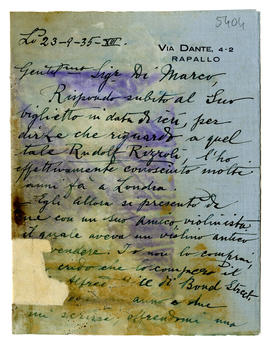 5404
VIA DANTE, 4-2
RAPALLO
Lì 23-9-35-XIII.
Gentmo Sigr Di Marco,
Rispondo subito al Suo
biglietto in data di ieri, per
dirLe che riguardo a quel
tale Rudolf Rizzoli, l'ho
effettivamente conosciuto molti
anni fa a Londra
Egli allora si presentò di
me con un suo amico, violinista
il quale aveva un violino antico
vendere. Io non lo comprai,
credo che lo comperò il
di Bond Street,
anno e due
mi scrisse offrendomi una